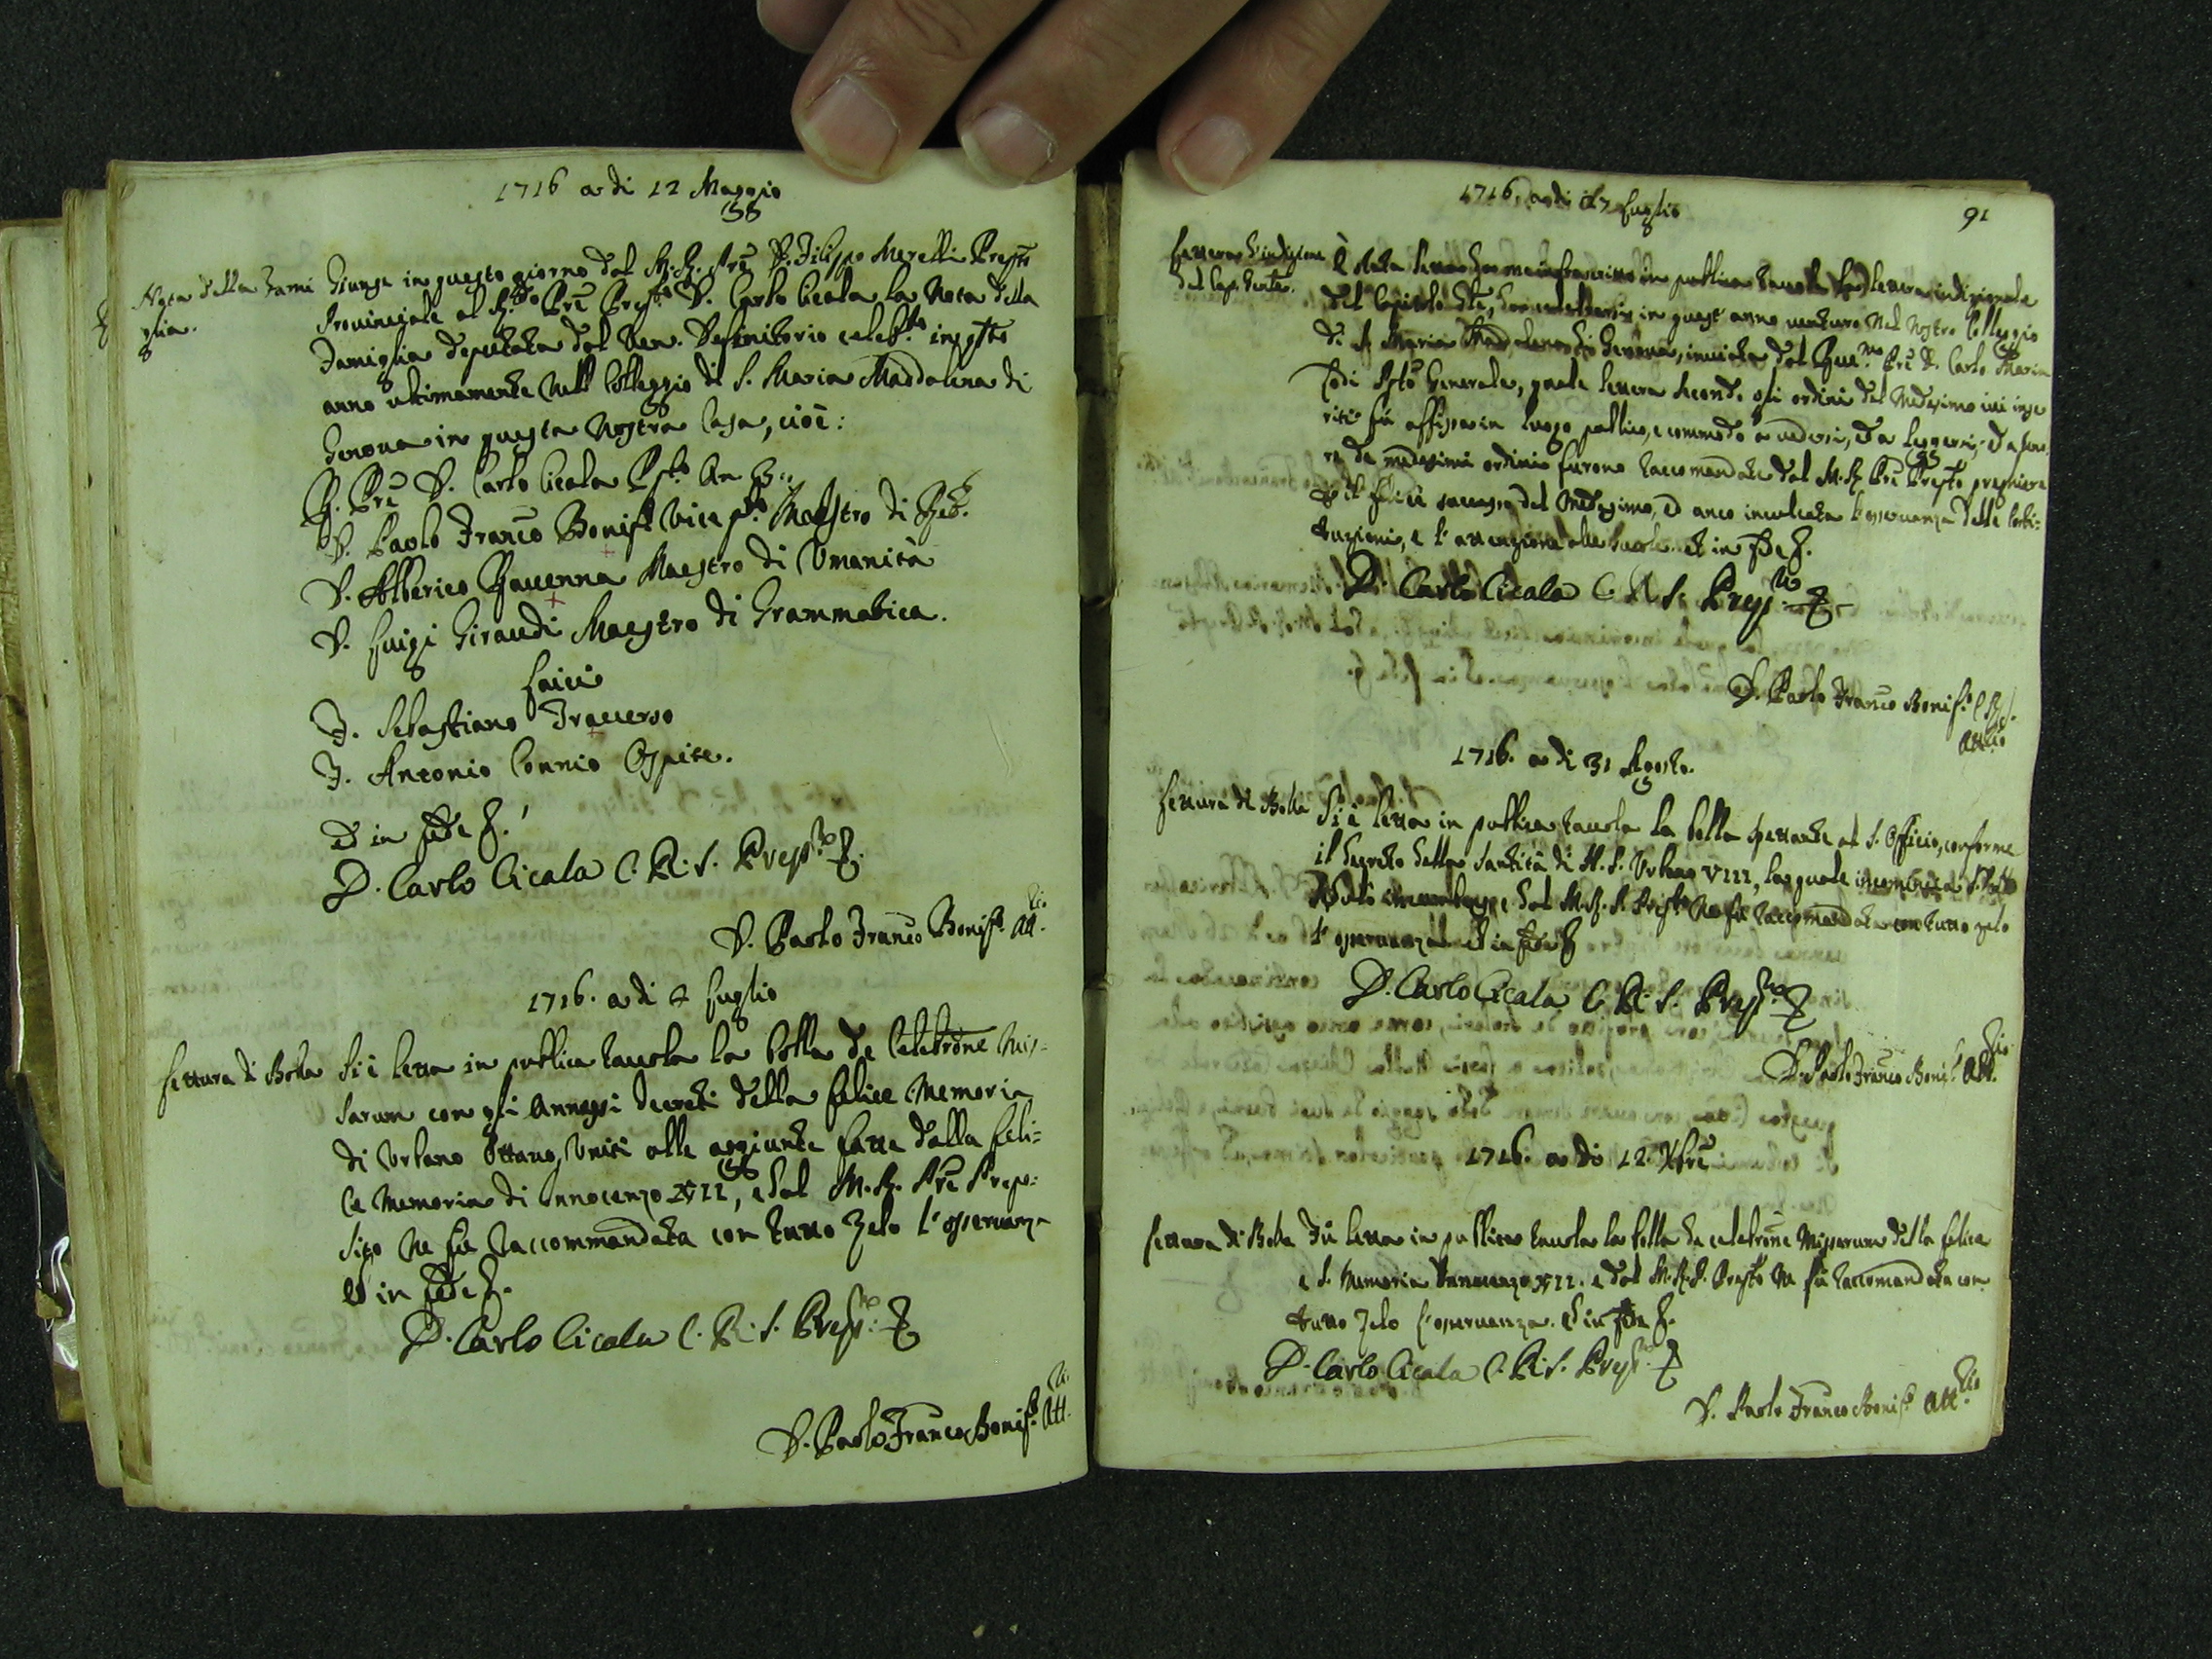 1716 a di 12 Maggio
Nota della Fami
glia.
Giunge in questo giorno dal M. R. Pre D. Filippo Merelli Prepto
Provinciale al R.do Pre Prep.to D. Carlo Cicala la Nota della
Famiglia deputata dal Ven. Definitorio celeb.to in qsto
anno ultimamente nell Colleggio di S. Maria Maddalena di
Genova in questa Nostra Casa, cioè:
R. Pre D. Carlo Cicala Pst.o An 3:o
D. Paolo Franco Bonift Vice p.to Maestro di Reb.
D. Alberico Gavenna Maestro di Umanità
D. Luigi Giraudi Maestro di Grammatica.
Laici
F. Sebastiano Traverso
F. Antonio Connio Ospite.
Et in fede &.
D. Carlo Cicala C. R. S. Prep.to
D. Paolo Franco Bonif.o Att.rio
1716. a di 2 Luglio
Lettura di Bolla
Si è letta in publica tavola la bolla de Celebrone Mis-
sarum con gli Annessi decreti della felice Memoria
di Urbano Ottavo, Uniti alle aggiunte fatte dalla feli-
ce Memoria di Innocenzo XII, e dal M. R. Pre Prepo:
sito ne fu raccommandata con tutto Zelo l'osservanza
Et in fede &.
D. Carlo Cicala C. R. S. Prep.to
D. Paolo Franco Bonif.o Att.rio
1716, a di 27 Luglio
91
Lettera d'indizione
del Cap. Gnle.
È stata letta in publica tavola la lettera indizionale
del Capitolo Gnle, da celebrarsi in quest' anno venturo nel Nostro Colleggio
di S. Maria Maddalena di Genova, inviata dal Rev.mo Pre D. Carlo Maria
Lodi Psto Generale, quale lettera secondo gli ordini del Medesimo ivi inse
riti fu affissa in luogo publico, e commodo a vedersi, et a leggersi, et a teno
re de medesimi ordini furono raccomandate dal M. R. Pre Prepto preghiere
p il felice successo del Medesimo, et anco inculcata l'osservanza delle Costi-
tuzioni, e l'attenzione alle Scuole. et in fede &.
D. Carlo Cicala C. R. S. Prep.to
D. Paolo Franco Bonif.o C R S.
Att.rio
1716. a di 31 Agosto.
Lettura di Bolla
Si è letta in publica tavola la bolla spettante al S. Officio, conforme
il decreto della Santità di N. S. Urbano VIII, la quale incomincia
e dal M. R. P. Prepto ne fu raccomandata con tutto zelo
l'osservanza. et in fede &
D. Carlo Cicala C. R. S. Prep.to
D. Paolo Franco Bonif.o Att.rio
1716. a di 12. Xbre
Lettura di Bolla
Fu letta in publica tavola la bolla de celebrone Missarum della felice
e S. Memoria Innocenzo XII. e dal M. R. P. Prepto ne fu raccomandata con
tutto Zelo l'osservanza. Et in fede &.
D. Carlo Cicala C. R. S. Prep.to
D. Paolo Franco Bonif.o Att.rio